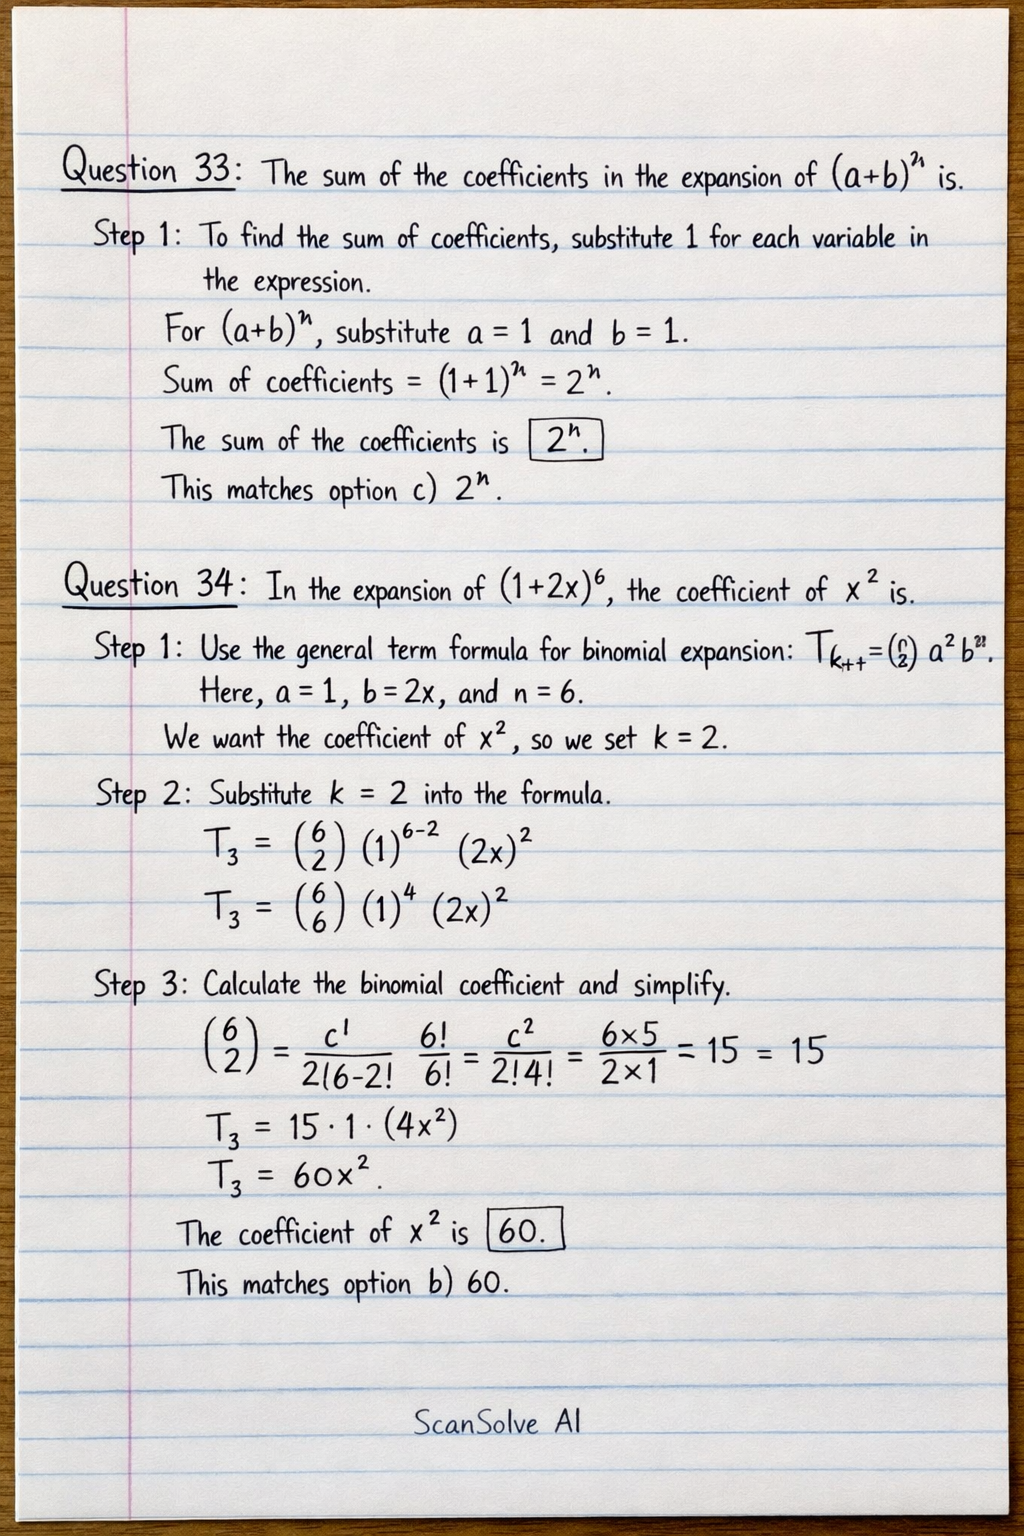 Question 33: The sum of the coefficients in the expansion of (a+b)^n is.
Step 1: To find the sum of coefficients, substitute 1 for each variable in
the expression.
For (a+b)^n, substitute a = 1 and b = 1.
Sum of coefficients = (1+1)^n = 2^n.
The sum of the coefficients is 2^n.
This matches option c) 2^n.
Question 34: In the expansion of (1+2x)^6, the coefficient of x^2 is.
Step 1: Use the general term formula for binomial expansion: T_k++ = ( 2) a^2 b
Here, a = 1, b = 2x, and n = 6.
We want the coefficient of x^2, so we set k = 2.
Step 2: Substitute k = 2 into the formula.
T_3 = (6 2) (1)^6-2 (2x)^2
T_3 = (6 6) (1)^4 (2x)^2
Step 3: Calculate the binomial coefficient and simplify.
(6 2) = c!/2!6-2! 6!/6! = c^2/2!4! = 6×5/2×1 = 15 = 15
T_3 = 15 · 1 · (4x^2)
T_3 = 60x^2.
The coefficient of x^2 is 60.
This matches option b) 60.
ScanSolve AI